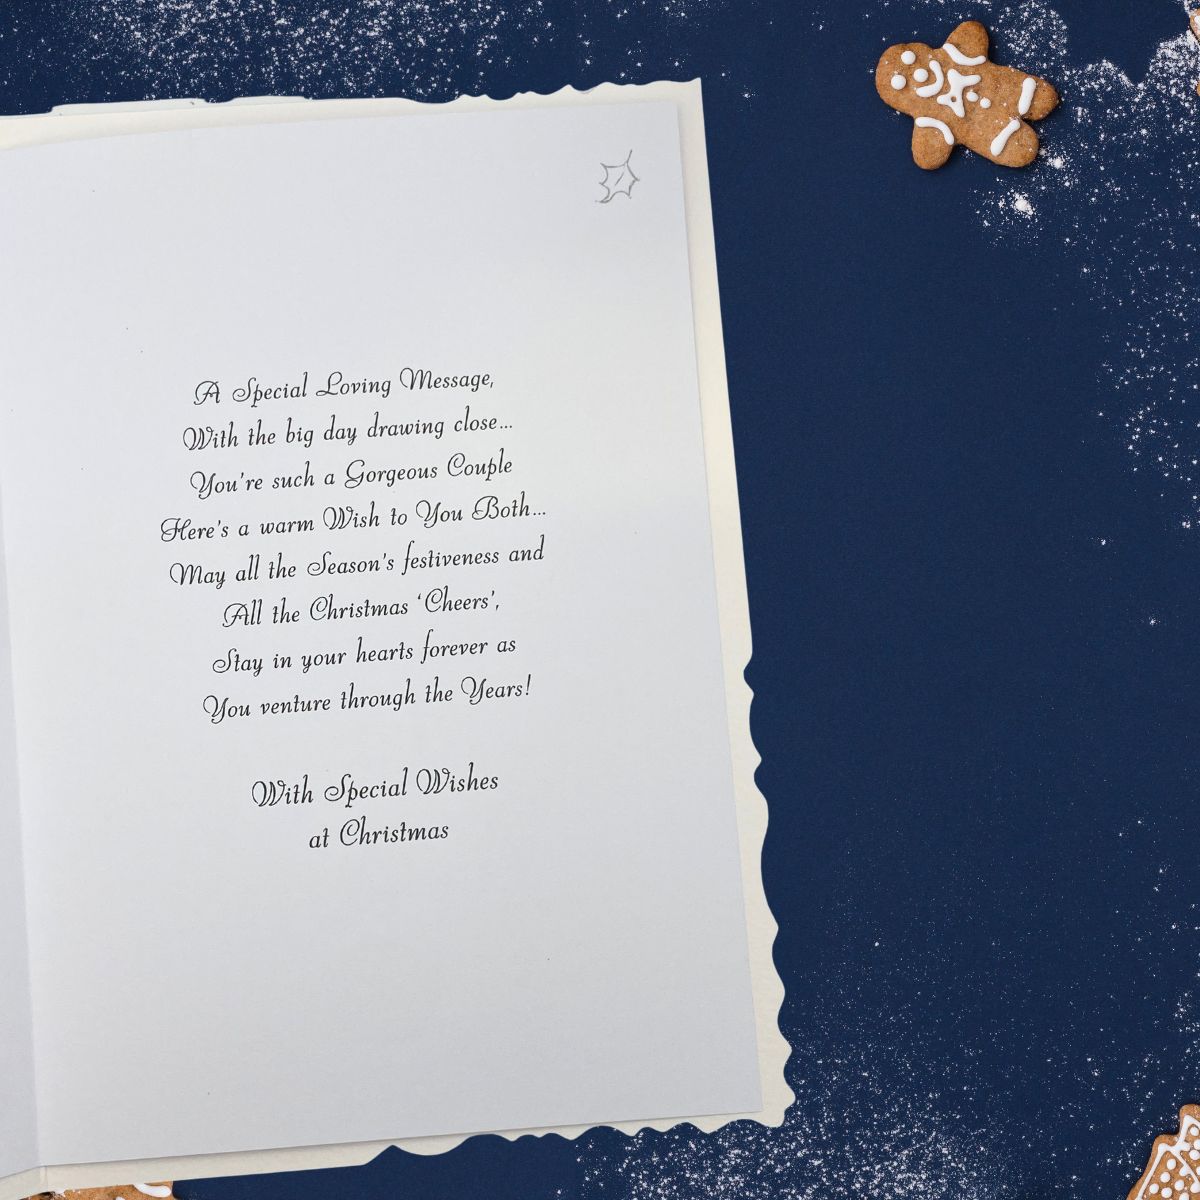 A Special Loving Message,
With the big day drawing close...
You're such a Gorgeous Couple
Here's a warm Wish to You Both...
May all the Season's festiveness and
All the Christmas ‘Cheers’,
Stay in your hearts forever as
You venture through the Years!
With Special Wishes
at Christmas